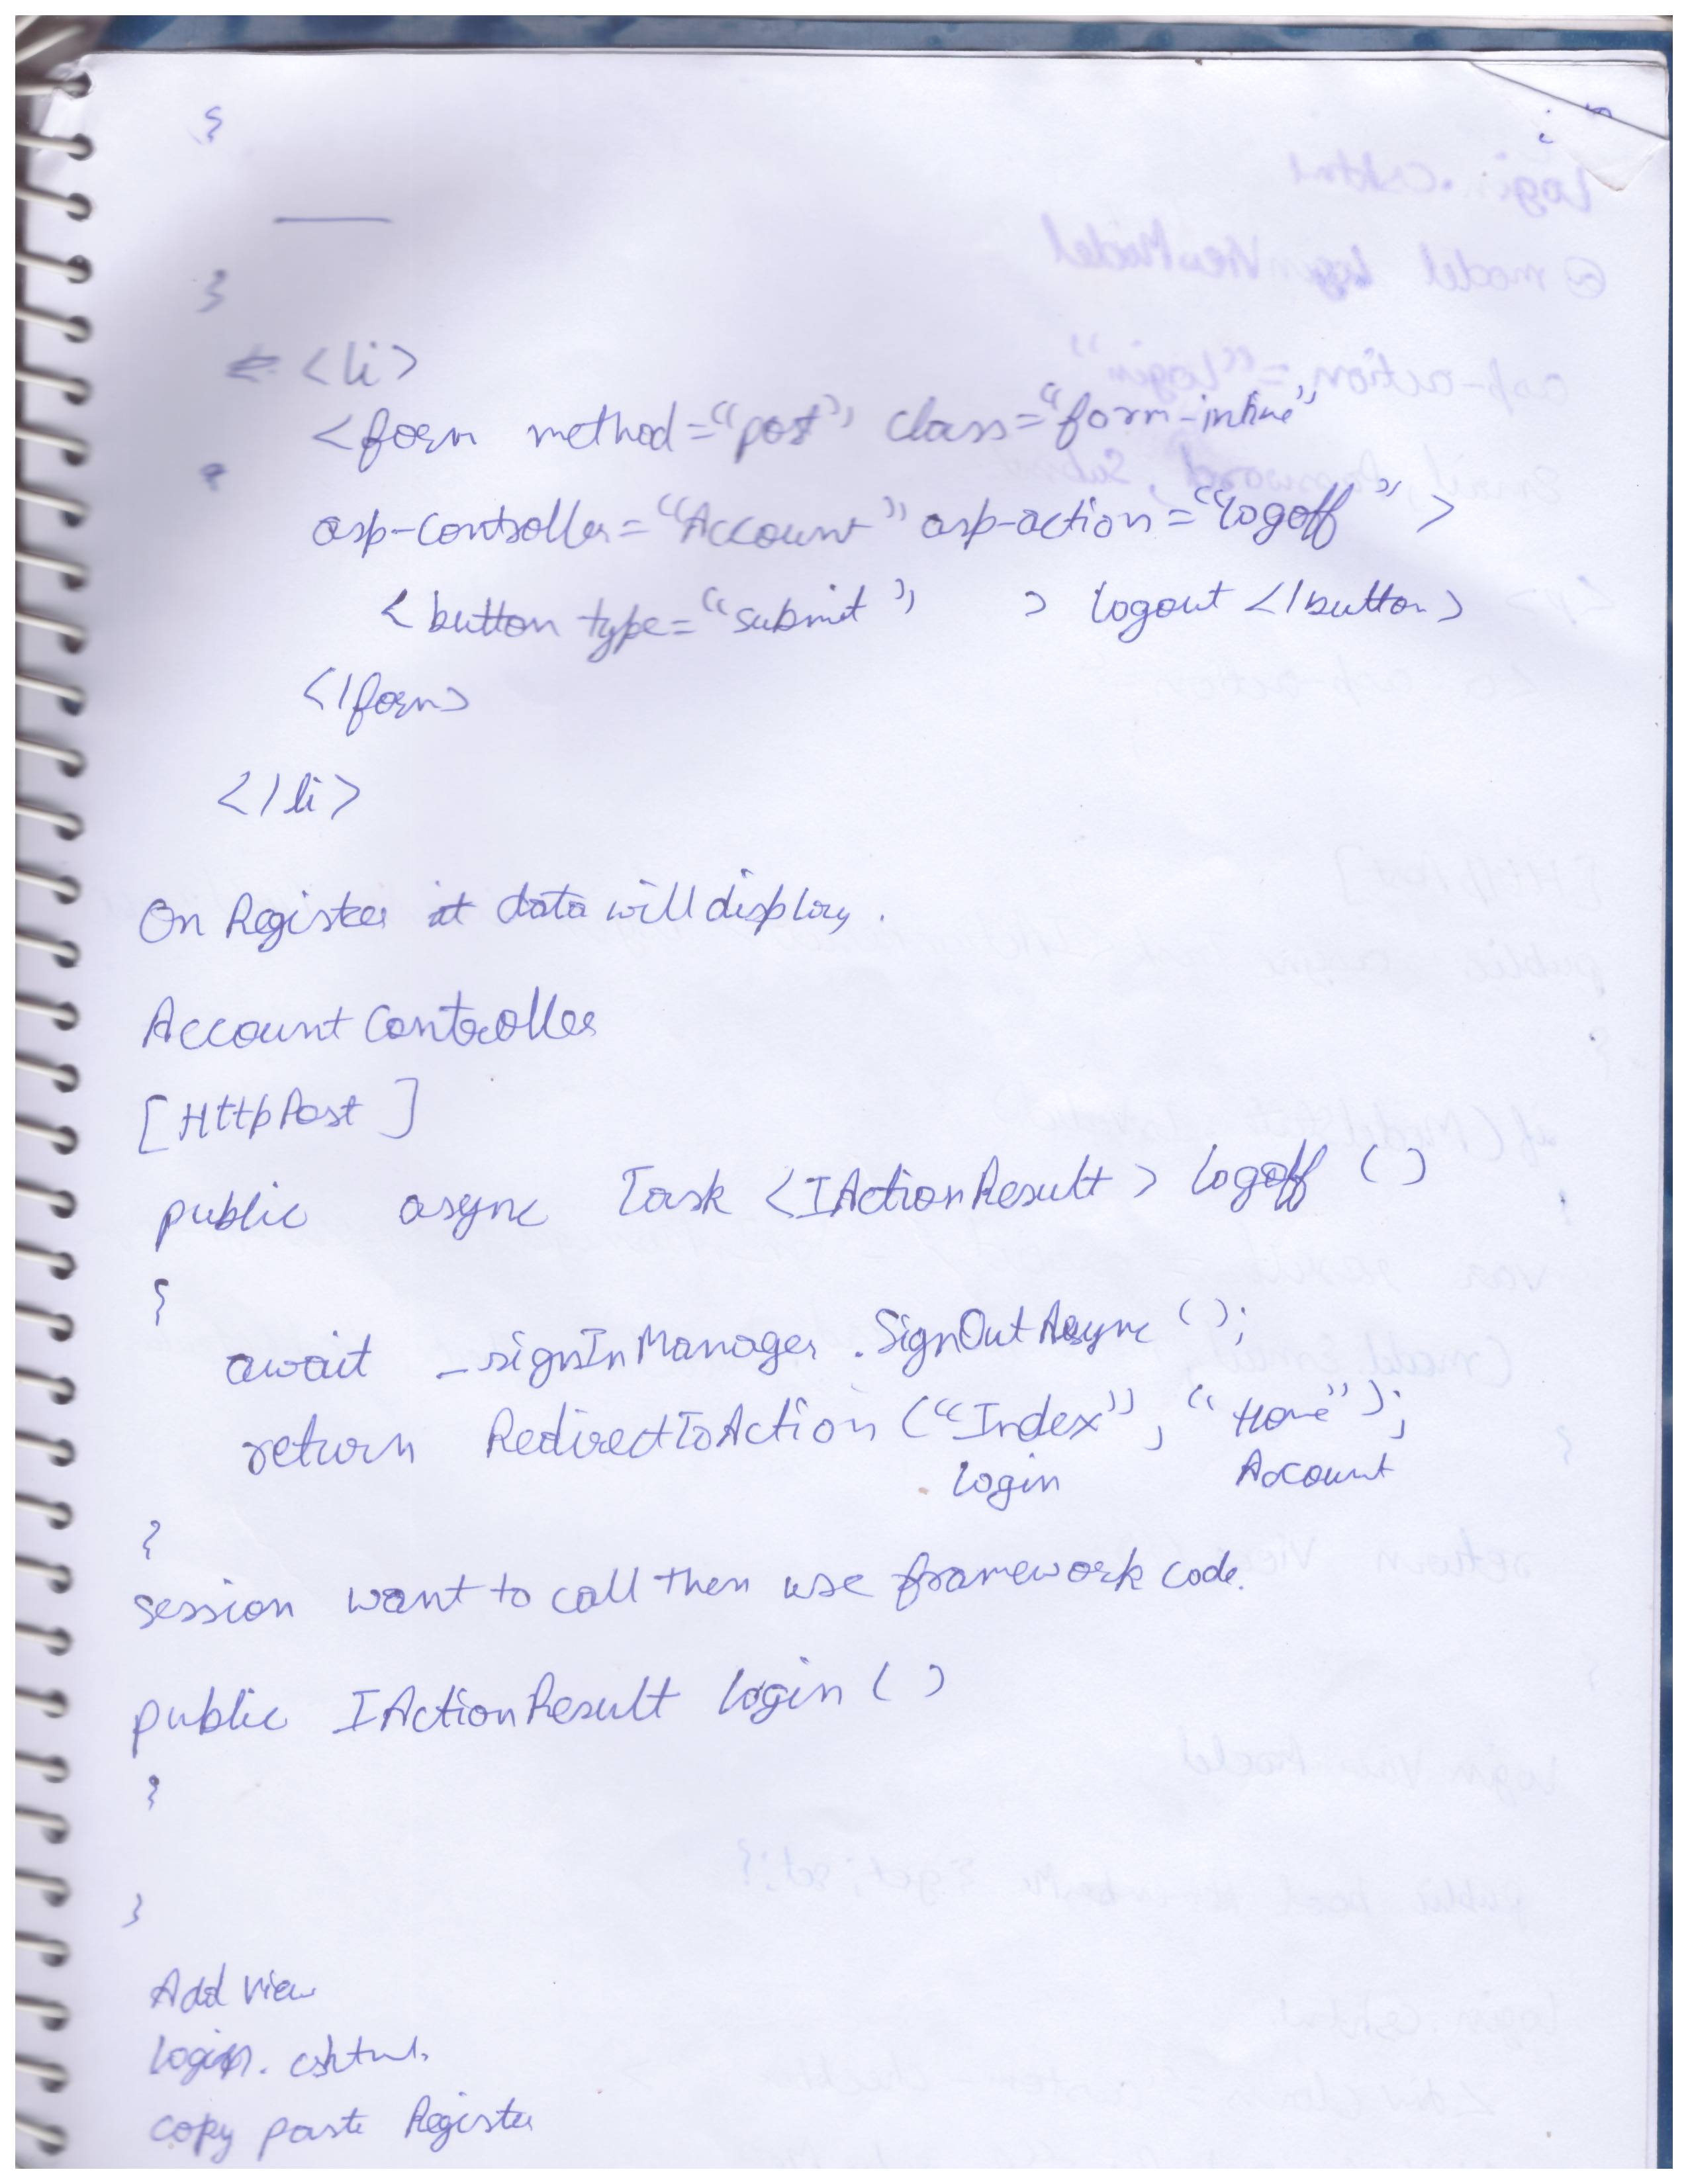 {
}
<li>
<form method="post" class="form-inline"
asp-controller="Account" asp-action="logoff">
<button type="submit" > logout </button>
</form>
</li>
On Register it data will display.
Account Controller
[HttpPost]
public async Task <IActionResult> logoff ()
{
await _signInManager.SignOutAsync ();
return RedirectToAction ("Index", "Home");
login Account
}
session want to call then use framework code.
public IActionResult login ()
{
}
Add view
login.cshtml.
copy paste Register